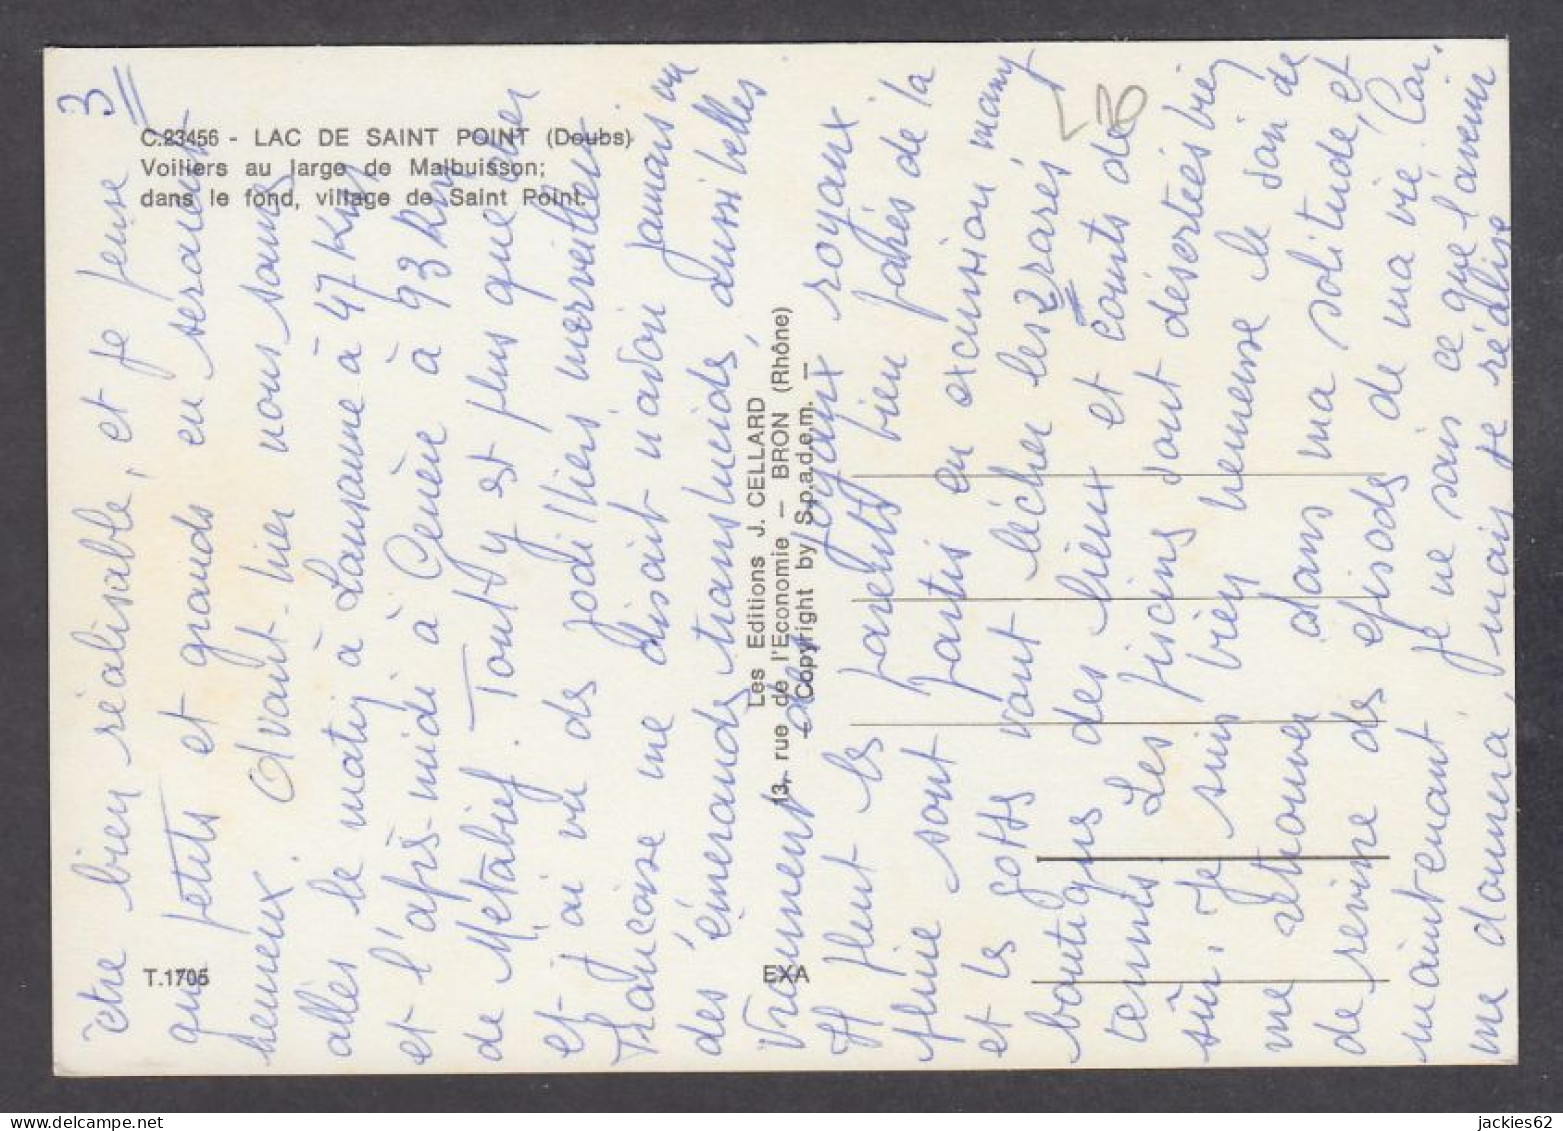 3
C.23456 - LAC DE SAINT POINT (Doubs)
Voiliers au large de Malbuisson;
dans le fond, village de Saint Point.
T.1705
EXA
Les Editions J. CELLARD
13, rue de l'Economie - BRON (Rhône)
- Copyright by S.p.a.d.e.m. -
être bien réalisable, et je pense
que petits et grands en seraient
heureux. Avant-hier nous sommes
allés le matin à Lausanne à 47 Km
et l'après-midi à Genève à 93 Km
de Métabief. Tout y est plus que cher
et j'ai vu des joailliers merveilleux.
Françoise me disait n'avoir jamais vu
des émeraudes translucides, aussi belles
Vraiment des joyaux royaux
Il pleut les parents bien fachés de la
pluie sont partis en excursion, mamy
et les gosses vont lécher les 2 rares
boutiques des lieux et courts de
tennis. Les piscines sont désertées bien
sûr. Je suis bien heureuse le soir de
me retrouver dans ma solitude, et
de revivre des episodes de ma vie. Car,
maintenant je ne sais ce que l'avenir
me donnera, mais se réalise
jackies62